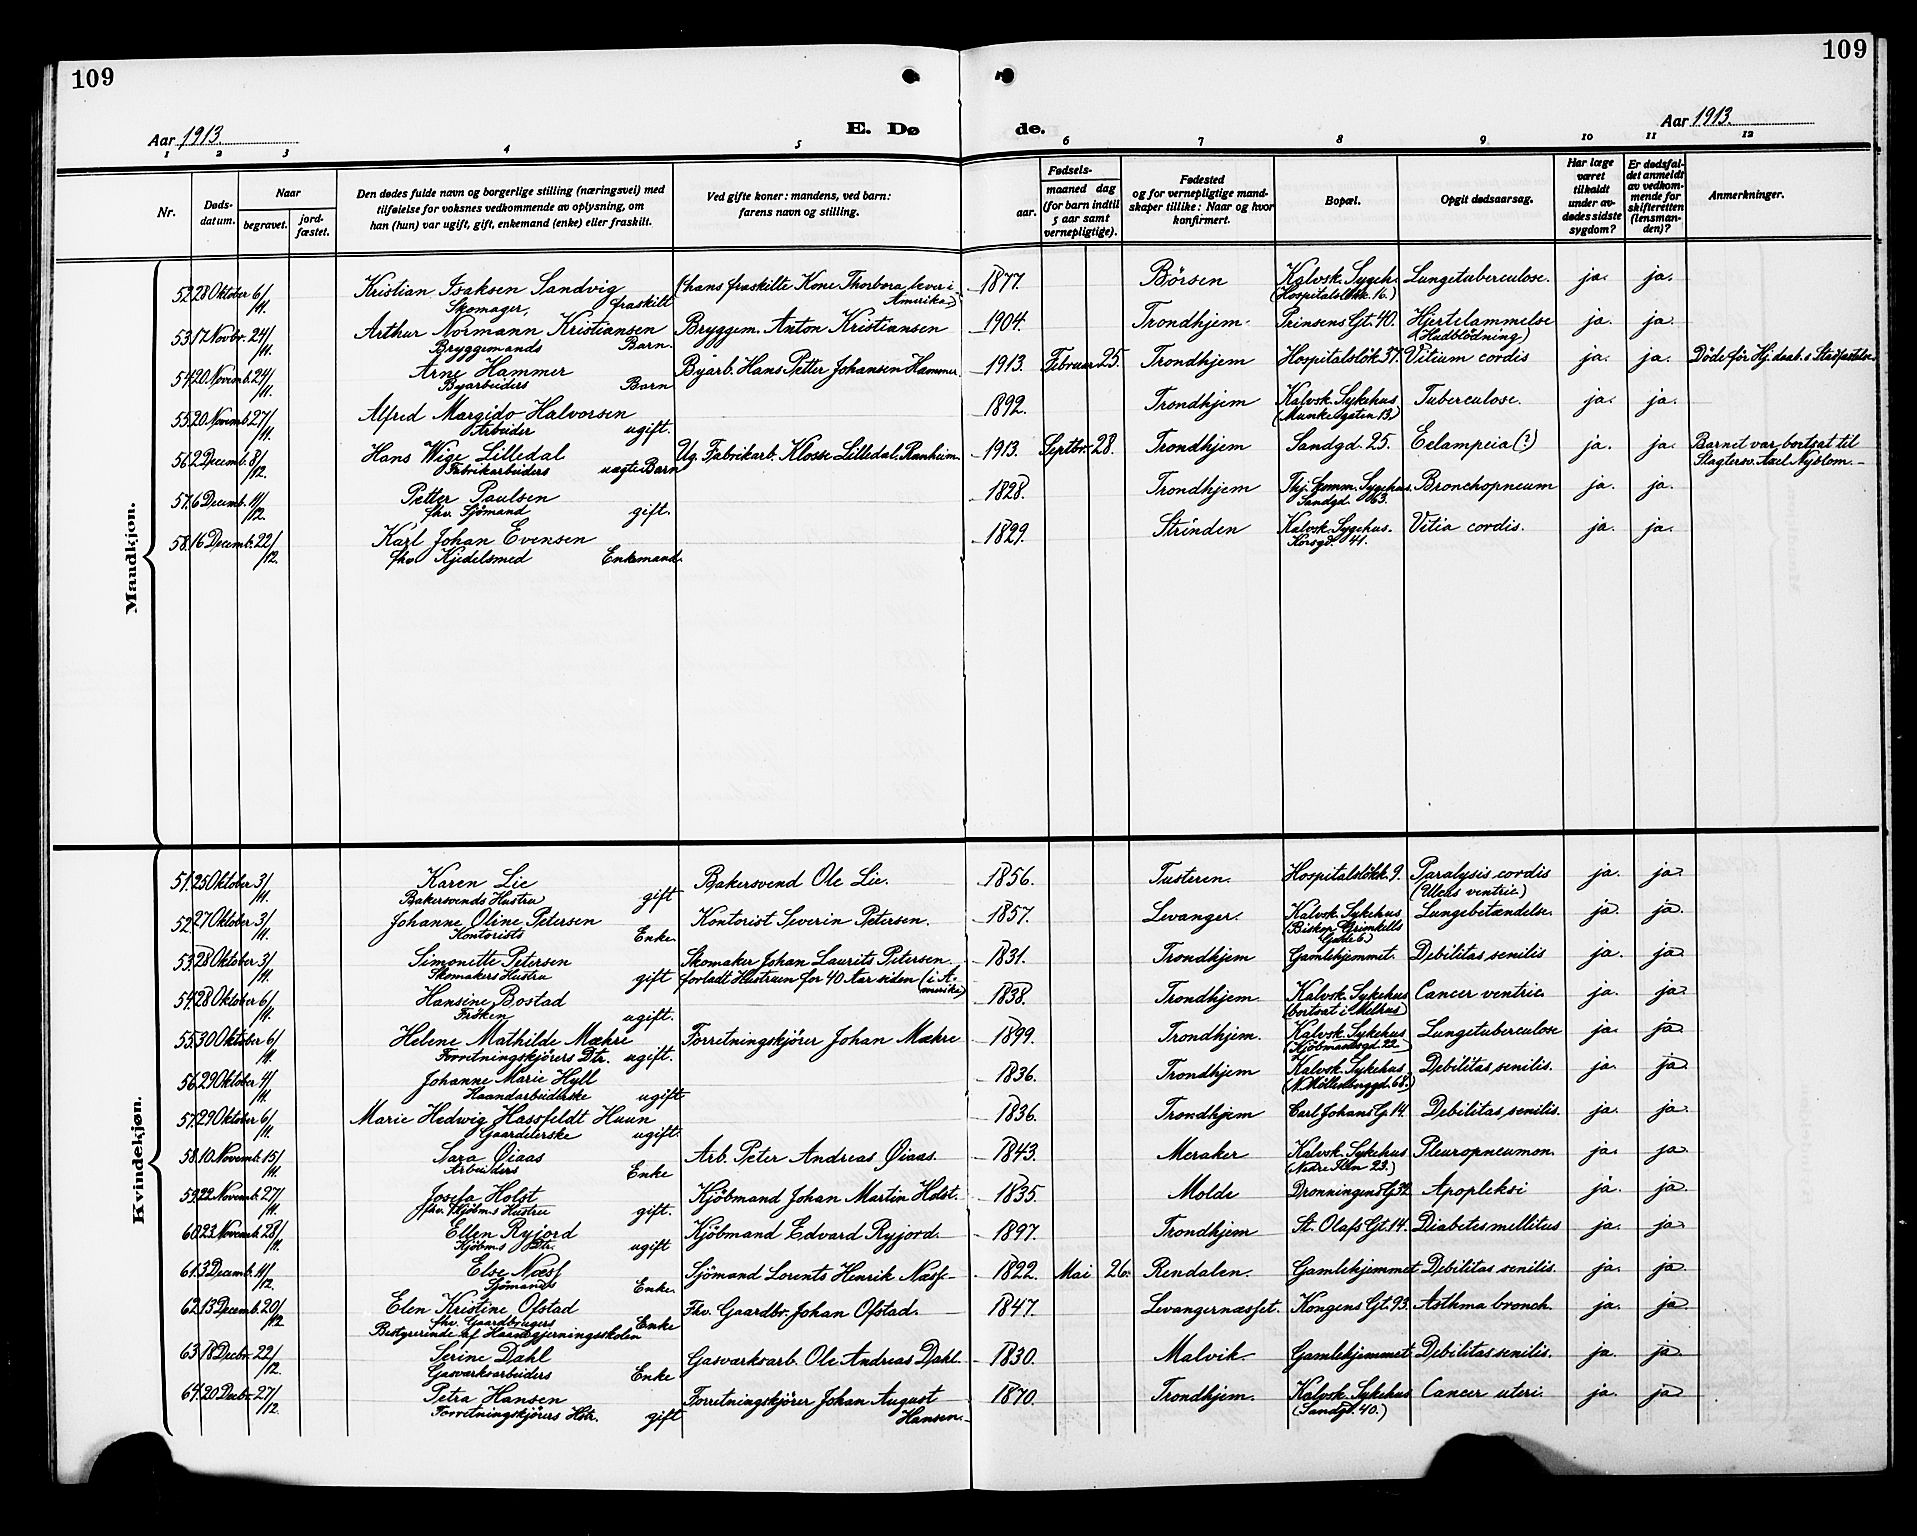 109
109
Aar 1913.
E. Dø
de.
Aar 1913.
1 2 3 4 5 6 7 8 9 10 11 12
Nr.
Døds-
datum.
Naar
begravet.
jord-
fæstet.
Den dødes fulde navn og borgerlige stilling (næringsvei) med
tilføielse for voksnes vedkommende av oplysning, om
han (hun) var ugift, gift, enkemand (enke) eller fraskilt.
Ved gifte koner: mandens, ved barn:
farens navn og stilling.
Fødsels-
aar.
maaned dag
(for barn indtil
5 aar samt
vernepligtige).
Fødested
og for vernepligtige mand-
skaper tillike: Naar og hvor
konfirmert.
Bopæl.
Opgit dødsaarsag.
Har læge
været
tilkaldt
under av-
dødes sidste
sygdom?
Er dødsfal-
det anmeldt
av vedkom-
mende for
skifteretten
(lensman-
den)?
Anmerkninger.
Mandkjøn.
52 28 Oktober 6/11. Kristian Isaksen Sandvig (hans fraskilte Kone Thorbora lever i 1877. Børsen Kalvsk. Sygeh. Lungetuberculose. ja. ja.
Skomager, fraskilt Amerika) (Hospitalsløkk. 16.)
53 17 Novbr. 24/11. Arthur Normann Kristiansen Bryggem. Anton Kristiansen 1904. Trondhjem. Prinsens Gt. 40. Hjertelammelse ja. ja.
Bryggemands Barn. (Hudblödning)
54 20 Novemb. 24/11. Arne Hammer Byarb. Hans Petter Johansen Hammer 1913. Februar 25. Trondhjem Hospitalsløk. 37. Vitium cordis ja. ja. Døde før Hj.daab.s Stadfæstelse
Byarbeiders Barn
55. 20 Novemb. 27/11. Alfred Margido Halvorsen 1892. Trondhjem Kalvsk. Sykehus Tuberculose. ja. ja.
Arbeider ugift. (Munkegaten 13.)
56 2 Decemb. 8/12. Hans Wige Lilledal Ug. Fabrikarb. Klosse Lilledal. Ranheim 1913. Septbr. 28. Trondhjem Sandgd. 25. Eclampsia (?) ja. ja. Barnet var bortsat til
Fabrikarbeiders uægte Barn Slagtersv. Axel Nyblom.
57. 6 Decemb. 11/12. Petter Paulsen 1828. Trondhjem Thj. Komm. Sygehus. Bronchopneum ja. ja.
fhv. Sjømand gift. Sandgd. 63.
58. 16 Decemb. 22/12. Karl Johan Evensen 1829. Strinden Kalvsk. Sygehus. Vitia cordis. ja. ja.
fhv. Kjedelsmed Enkemand. Korsgd. 41.
Kvindekjøn.
51. 25 Oktober 3/11. Karen Lie Bakersvend Ole Lie. 1856. Tusteren. Hospitalsløkk. 9. Paralysis cordis ja. ja
Bakersvends Hustru gift (Ulcus ventric.)
52 27 Oktober 3/11. Johanne Oline Petersen Kontorist Severin Petersen. 1857. Levanger. Kalvsk. Sykehus Lungebetændelse. ja ja.
Kontorists Enke. (Biskop Grimkells
Gate 6)
53. 28 Oktober 3/11. Simonette Petersen Skomaker Johan Laurits Petersen. 1831. Trondhjem Gamlehjemmet. Debilitas senilis ja. ja
Skomakers Hustru gift forladt Hustruen for 40 Aar siden (i A-
merika)
54. 28 Oktober 6/11. Hansine Bostad 1838. Trondhjem. Kalvsk. Sykehus Cancer ventric. ja. ja.
Frøken ugift. (bortsat i Melhus)
55. 30 Oktober 6/11. Helene Mathilde Mæhre Forretningskjører Johan Mæhre 1899. Trondhjem. Kalvsk. Sykehus Lungetuberculose ja. ja
Forretningskjørers Dtr. ugift. (Kjøbmandsgd. 22)
56. 29 Oktober 4/11. Johanne Marie Hyll 1836. Trondhjem Kalvsk. Sykehus Debilitas senilis. ja. ja
Haandarbeiderske ugift (N. Møllenberggd. 68.)
57. 29 Oktober 6/11. Marie Hedwig Hassfeldt Huun 1836. Trondhjem Carl Johans G. 14. Debilitas senilis. ja. ja.
Gaardeierske ugift.
58. 10. Novemb. 15/11. Sara Øiaas Arb. Peter Andreas Øiaas. 1843. Meraker Kalvsk. Sykehus Pleuropneumon. ja. ja.
Arbeiders Enke (Nedre Ilen 23.)
59. 22 Novemb. 27/11. Josefa Holst Kjøbmand Johan Martin Holst. 1835. Molde Dronningens G. 32 Apopleksi ja. ja.
fhv. Kjøbm.s Hustru gift.
60. 23. Novemb. 28/11. Ellen Ryjord Kjøbmand Edvard Ryjord. 1897. Trondhjem St. Olafs Gt. 14. Diabetes mellitus ja. ja
Kjøbm.s Dtr. ugift
61. 3 Decemb. 11/12. Else Næss Sjømand Lorents Henrik Næss. 1822. Mai 26. Rendalen. Gamlehjemmet Debilitas senilis. ja. ja
Sjømands Enke.
62. 13 Decemb. 20/12 Elen Kristine Ofstad Fhv. Gaardbr. Johan Ofstad. 1847. Levangernæsset. Kongens Gt. 93. Asthma bronch. ja. ja
fhv. Gaardbrugers Enke
Bestyrerinde af Haandgjerningsskolen
63 18 Decbr. 22/12. Serine Dahl Gasværksarb. Ole Andreas Dahl. 1830. Malvik. Gamlehjemmet Debilitas senilis. ja. ja
Gasværksarbeiders Enke
64. 20 Decbr. 27/12. Petra Hansen Forretningskjører Johan August 1870. Trondhjem. Kalvsk. Sykehus Cancer uteri. ja. ja
Forretningskjørers Hstr. gift Hansen. (Sandgd. 40.)